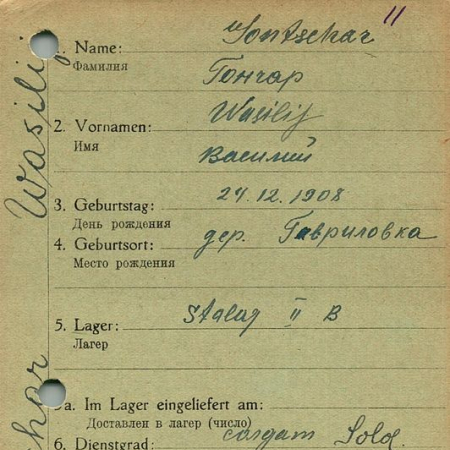 11
1. Name: Gontschar
Фамилия Гончар
2. Vornamen: Wasilij
Имя Василий
3. Geburtstag: 24.12.1908
День рождения
4. Geburtsort: дер. Гавриловка
Место рождения
5. Lager: Stalag II B
Лагер
a. Im Lager eingeliefert am:
Доставлен в лагер (число)
6. Dienstgrad: солдат Sold.
Wasilij
char